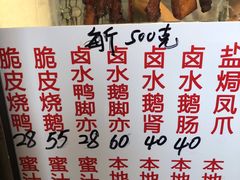 每斤500克
脆皮烧鸭
28
脆皮烧鹅
55
卤水鸭脚亦
28
卤水鹅脚亦
60
卤水鹅肾
40
卤水鹅肠
40
盐焗凤爪
蜜汁
蜜汁
本地
本地
本地